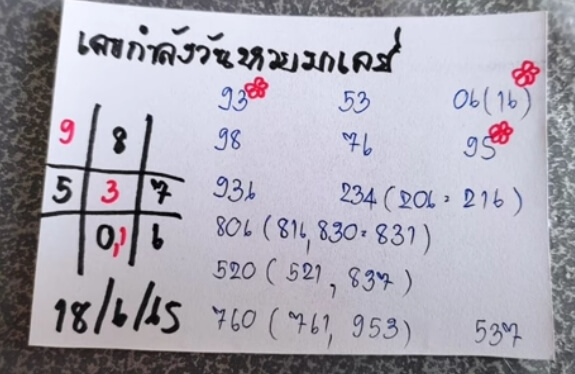 เลขกำลังวันหวยมาเลย์
93 53 06(16)
9 8 98 76 95
5 3 7 936 234 (206=216)
0,1 6 806 (816,830=831)
520 (521, 837)
18/6/65 760 (761, 953) 537